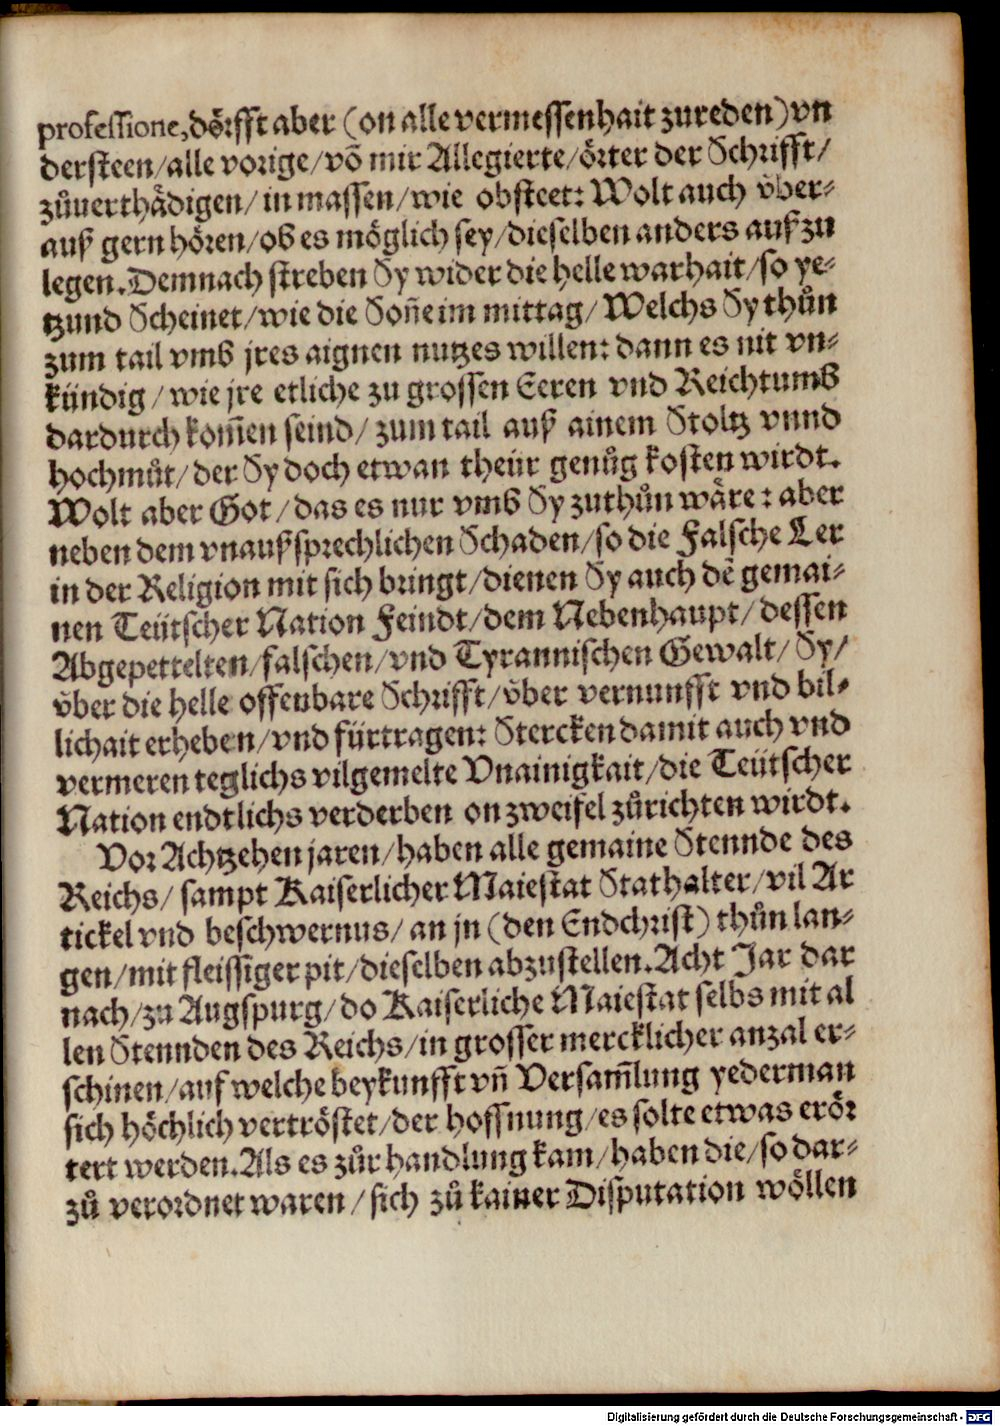 professione, dörfft aber (on alle vermessenhait zureden) vn
dersteen/alle vorige/võ mir Allegierte/örter der Schrifft/
zůuerthädigen/in massen/wie obsteet: Wolt auch vͤber-
auß gern hören/ob es möglich sey/dieselben anders auß zu
legen. Demnach streben Sy wider die helle warhait/so ye-
tzund Scheinet/wie die Soñe im mittag/ Welchs Sy thůn
zum tail vmb jres aignen nutzes willen: dann es nit vn-
kündig/wie jre etliche zu grossen Eeren vnd Reichtumb
dardurch kom̃en seind/ zum tail auß ainem Stoltz vnnd
hochmůt/der Sy doch etwan theür genůg kosten wirdt.
Wolt aber Got/das es nur vmb Sy zuthůn wäre: aber
neben dem vnaußsprechlichen Schaden/so die Falsche Ler
in der Religion mit sich bringt/dienen Sy auch dẽ gemai-
nen Teütscher Nation Feindt/dem Nebenhaupt/dessen
Abgepettelten/falschen/vnd Tyrannischen Gewalt/ Sy/
vͤber die helle offenbare Schrifft/vͤber vernunfft vnd bil-
lichait erheben/vnd fürtragen: Stercken damit auch vnd
vermeren teglichs vilgemelte Vnainigkait/die Teütscher
Nation endtlichs verderben on zweifel zůrichten wirdt.
Vor Achtzehen jaren/haben alle gemaine Stennde des
Reichs/ sampt Kaiserlicher Maiestat Stathalter/vil Ar
tickel vnd beschwernus/ an jn (den Endchrist) thůn lan-
gen/mit fleissiger pit/dieselben abzustellen. Acht Jar dar
nach/zu Augspurg/do Kaiserliche Maiestat selbs mit al
len Stennden des Reichs/in grosser mercklicher anzal er-
schinen/auf welche beykunfft vñ Versam̃lung yederman
sich höchlich vertröstet/der hoffnung/es solte etwas erör
tert werden. Als es zůr handlung kam/haben die/so dar-
zů verordnet waren/sich zů kainer Disputation wöllen
Digitalisierung gefördert durch die Deutsche Forschungsgemeinschaft - DFG